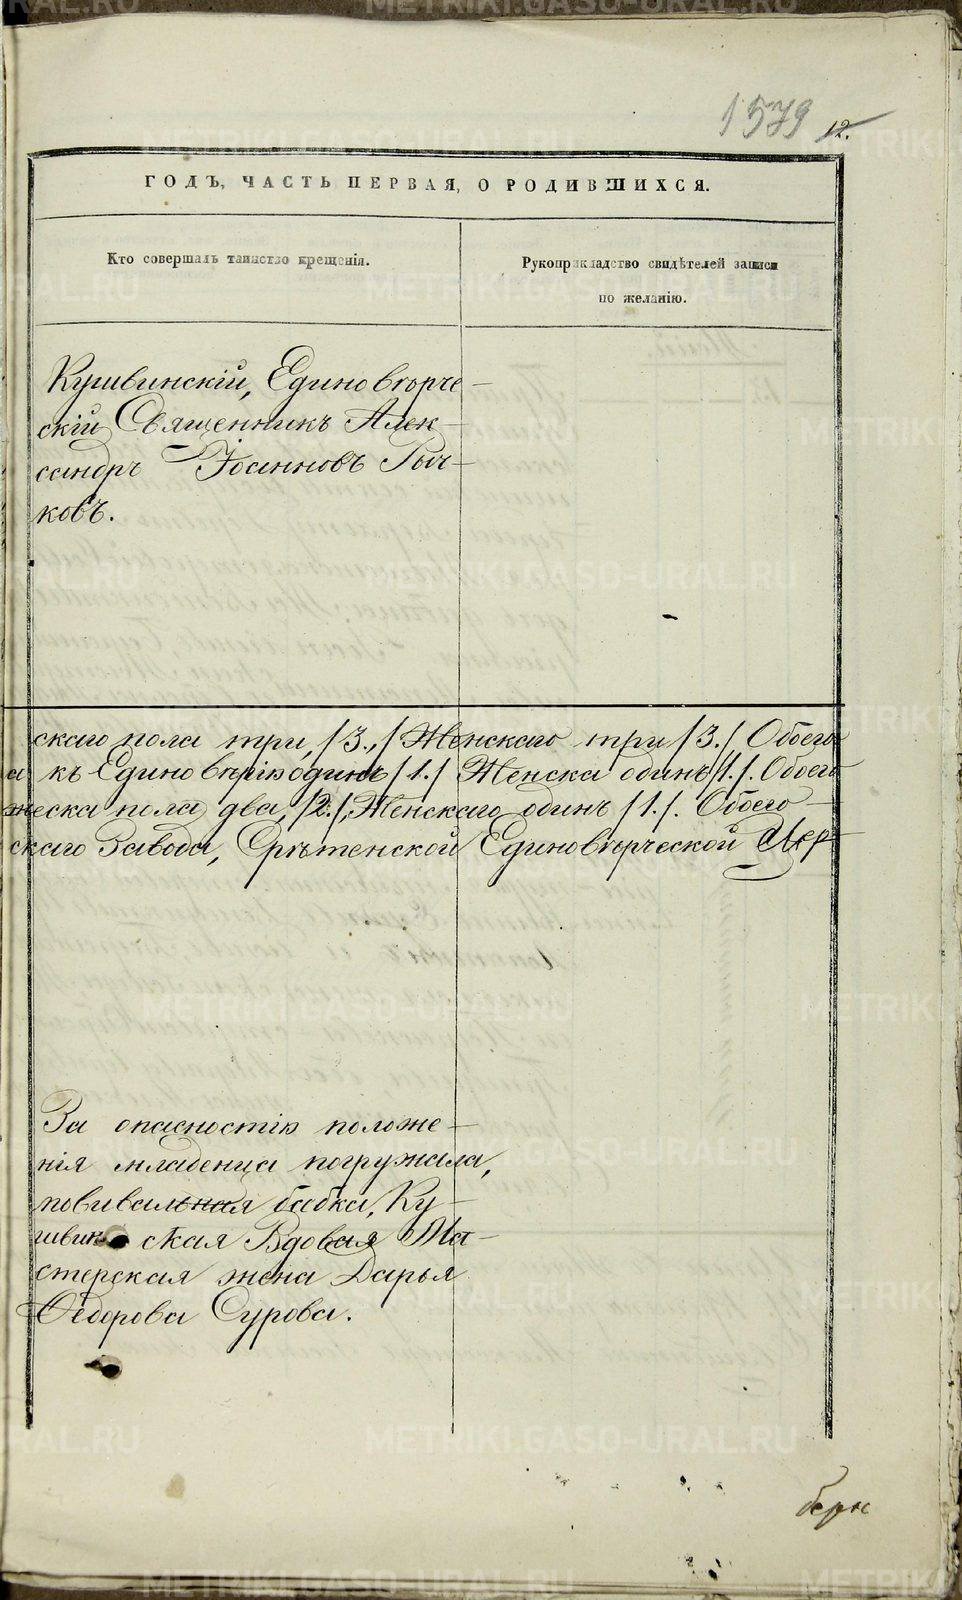 1579 12.
ГОДЪ, ЧАСТЬ ПЕРВАЯ, О РОДИВШИХСЯ.
Кто совершалъ таинство крещенія.
Рукоприкладство свидѣтелей записи
по желанію.
Кушвинскій, Единовѣрче-
скій Священникъ Алек-
сандръ Іоанновъ Рыч-
ковъ.
скаго пола три, /3./ Женскаго три /3./, Обоего
а къ Единовѣрію одинъ /1./ Женска одинъ /1./. Обоего
жеска пола два, /2./, Женскаго одинъ /1./. Обоего
скаго Завода, Срѣтенской Единовѣрческой Цер-
За опасностію положе-
нія младенца погружала,
повивальная бабка, Ку-
швин ская Вдовая Ма-
стерская жена Дарья
Ѳедорова Сурова.
METRIKI.GASO-URAL.RU